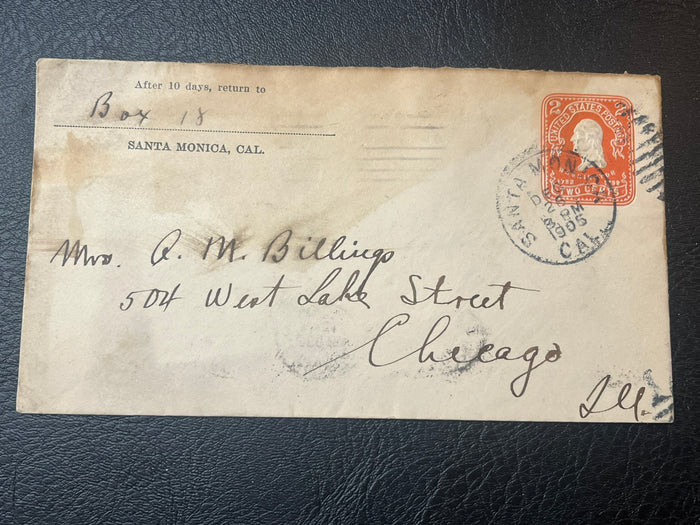 After 10 days, return to
Box 18
SANTA MONICA, CAL.
2 UNITED STATES POSTAGE 2
WASHINGTON
TWO CENTS
SANTA MONICA
DEC
1905
CAL.
Mrs. A. M. Billings
504 West Lake Street
Chicago
Ill.